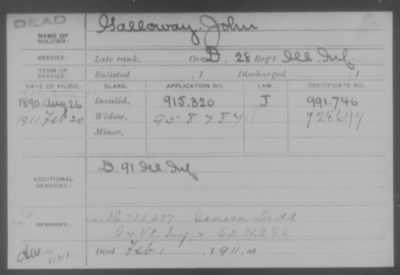 DEAD
NAME OF SOLDIER: Galloway, John
SERVICE: Late rank, Co. D, 28 Reg't Ill. Inf.
TERM OF SERVICE: Enlisted , 1 Discharged , 1
DATE OF FILING. CLASS. APPLICATION NO. LAW. CERTIFICATE NO.
1890 Aug 26 Invalid, 915.320 J 991.746
1911 Feb 20 Widow, 958787 728699
Minor,
ADDITIONAL SERVICES: D. 91 Ill. Inf.
REMARKS:
Died Feb 1, 1911, at